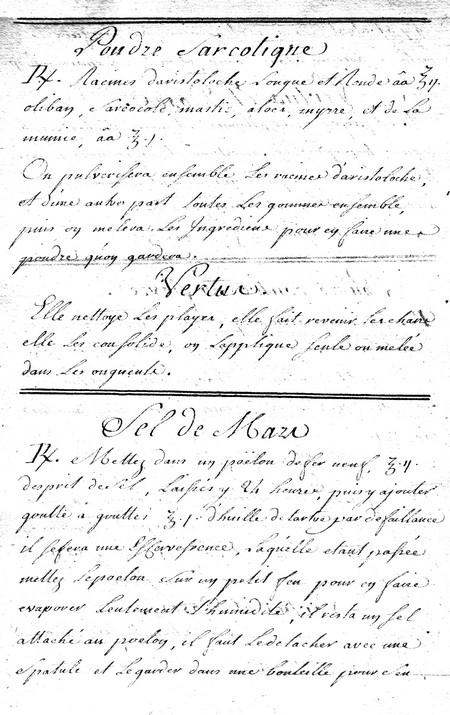 Poudre Sarcotique
℞. Racines d'aristoloche Longue et Ronde āā ℥.ıı.
oliban, Sarcocole, mastic, aloës, myrre, et de La
mumie, āā ℥.ı.
On pulverisera ensemble Les racines d'aristoloche,
et d'une autre part toutes Les gommes ensemble,
puis on melera Les Ingrediens pour en faire une
poudre qu'on gardera.
Vertus
Elle nettoye Les playes, elle fait revenir Les chairs
elle Les consolide, on L'applique seule ou melée
dans Les onguents.
Sel de Mars
℞. Mettez dans un poëlon de fer neuf, ℥.ıı.
d'esprit de Sel, Laissés y 24 heures puis y ajouter
goutte a goutte ℥.ı. d'huille de tartre par defaillance
il se fera une Effervesence, Laquelle etant passée
mettez Le poelon sur un petit feu pour en faire
evaporer Lentement L'humidité, il resta un sel
attaché au poelon, il faut Le detacher avec une
Spatule et Le garder dans une bouteille pour s'en